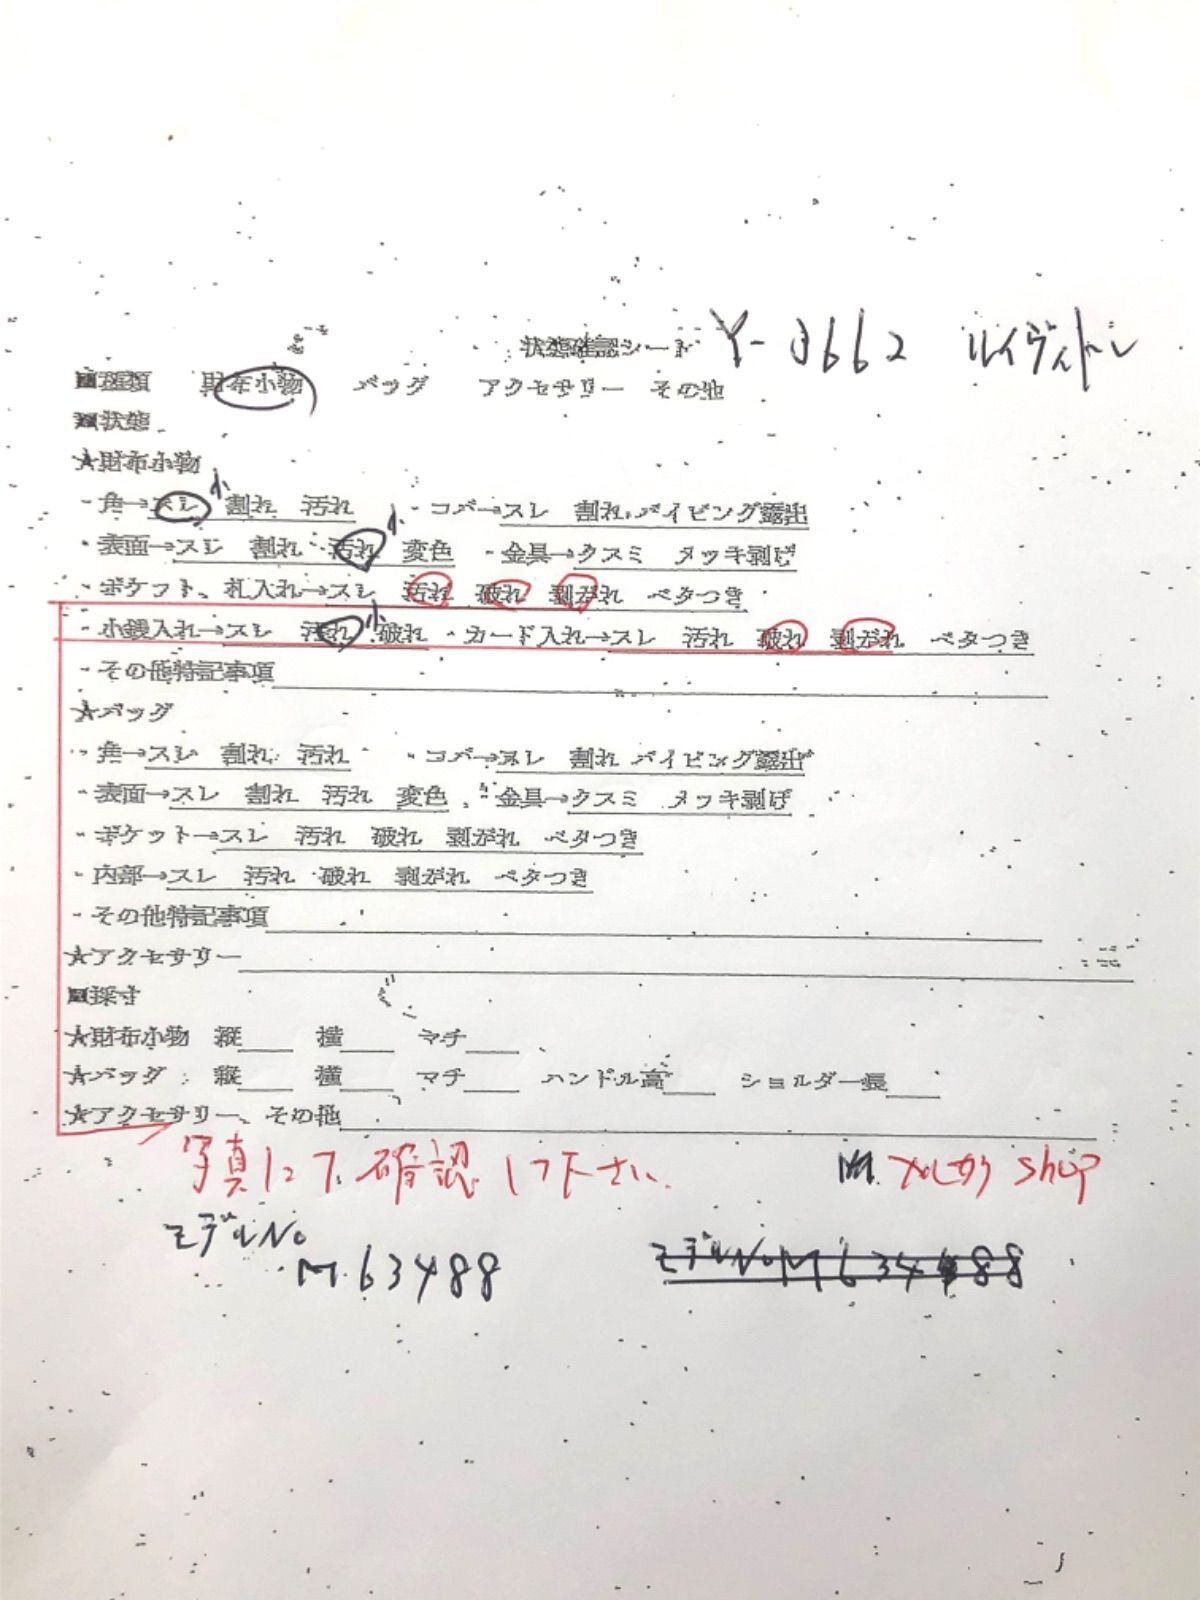 状態確認シート Y-3662 ルイヴィトン
■種類 財布小物 バッグ アクセサリー その他
■状態
★財布小物
・角→スレ 小 割れ 汚れ ・コバ→スレ 割れ パイピング露出
・表面→スレ 割れ 汚れ 小 変色 ・金具→クスミ メッキ剥げ
・ポケット、札入れ→スレ 汚れ 破れ 剥がれ ベタつき
・小銭入れ→スレ 汚れ 小 破れ ・カード入れ→スレ 汚れ 破れ 剥がれ ベタつき
・その他特記事項
★バッグ
・角→スレ 割れ 汚れ ・コバ→スレ 割れ パイピング露出
・表面→スレ 割れ 汚れ 変色 ・金具→クスミ メッキ剥げ
・ポケット→スレ 汚れ 破れ 剥がれ ベタつき
・内部→スレ 汚れ 破れ 剥がれ ベタつき
・その他特記事項
★アクセサリー
■採寸
★財布小物 縦 横 マチ
★バッグ 縦 横 マチ ハンドル高 ショルダー長
★アクセサリー、その他
写真にて確認して下さい shop
モデルNo
M63488 モデルNoM63488